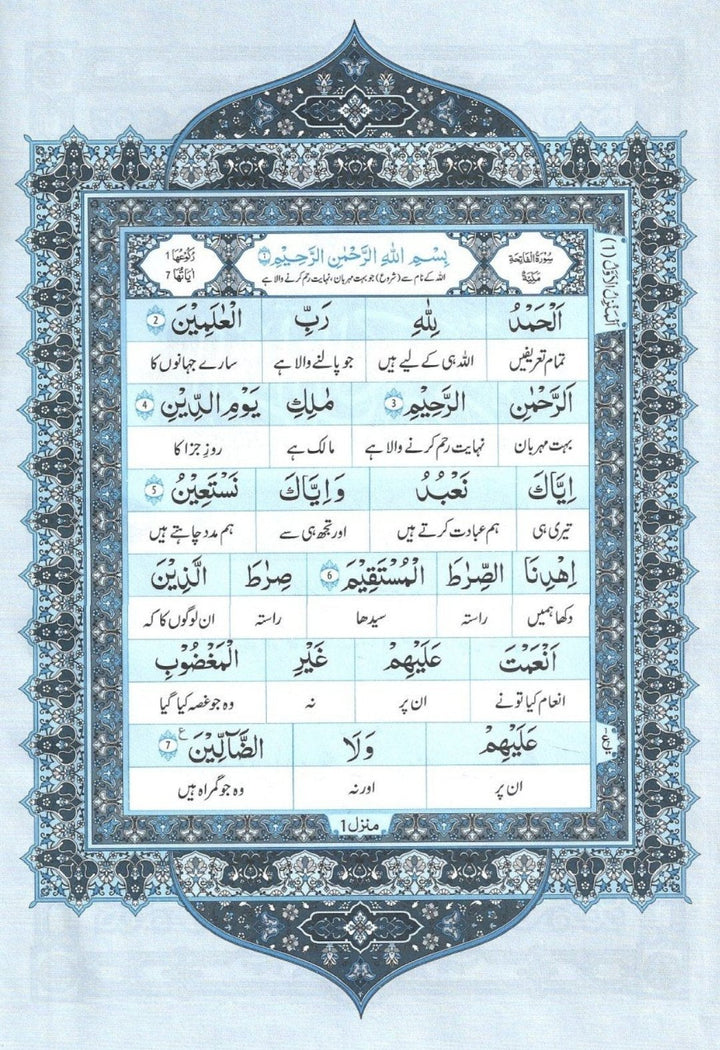 سُوْرَةُ الْفَاتِحَةِ مَكِّيَّةٌ
بِسْمِ اللّٰهِ الرَّحْمٰنِ الرَّحِيْمِ ۝١
رُكُوْعُهَا 1
اٰيَاتُهَا 7
اللہ کے نام سے (شروع) جو بہت مہربان، نہایت رحم کرنے والا ہے
اَلْمَنْزِلُ الْاَوَّلُ (١)
اَلْحَمْدُ لِلّٰهِ رَبِّ الْعٰلَمِيْنَ 2
تمام تعریفیں اللہ ہی کے لیے ہیں جو پالنے والا ہے سارے جہانوں کا
الرَّحْمٰنِ الرَّحِيْمِ 3 مٰلِكِ يَوْمِ الدِّيْنِ 4
بہت مہربان نہایت رحم کرنے والا ہے مالک ہے روزِ جزا کا
اِيَّاكَ نَعْبُدُ وَاِيَّاكَ نَسْتَعِيْنُ 5
تیری ہی ہم عبادت کرتے ہیں اور تجھ ہی سے ہم مدد چاہتے ہیں
اِهْدِنَا الصِّرَاطَ الْمُسْتَقِيْمَ 6 صِرَاطَ الَّذِيْنَ
دکھا ہمیں راستہ سیدھا راستہ ان لوگوں کا کہ
اَنْعَمْتَ عَلَيْهِمْ غَيْرِ الْمَغْضُوْبِ
انعام کیا تونے ان پر نہ وہ جو غصہ کیا گیا
عَلَيْهِمْ وَلَا الضَّآلِّيْنَ 7 ع
ان پر اور نہ وہ جو گمراہ ہیں
منزل 1